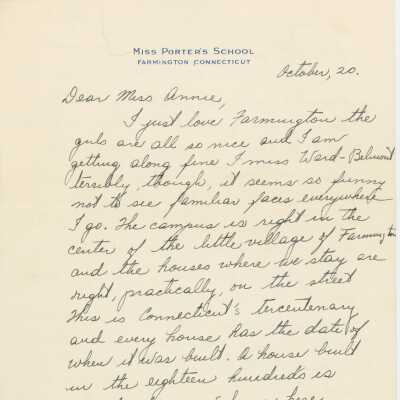 MISS PORTER'S SCHOOL
FARMINGTON CONNECTICUT
October, 20.
Dear Miss Annie,
I just love Farmington the
girls are all so nice and I am
getting along fine I miss Ward-Belmont
terribly, though, it seems so funny
not to see familiar faces everywhere
I go. The campus is right in the
center of the little village of Farmington
and the houses where we stay are
right, practically, on the street
This is Connecticut's tercentenary
and every house has the date of
when it was built. A house built
in the eighteen hundreds is